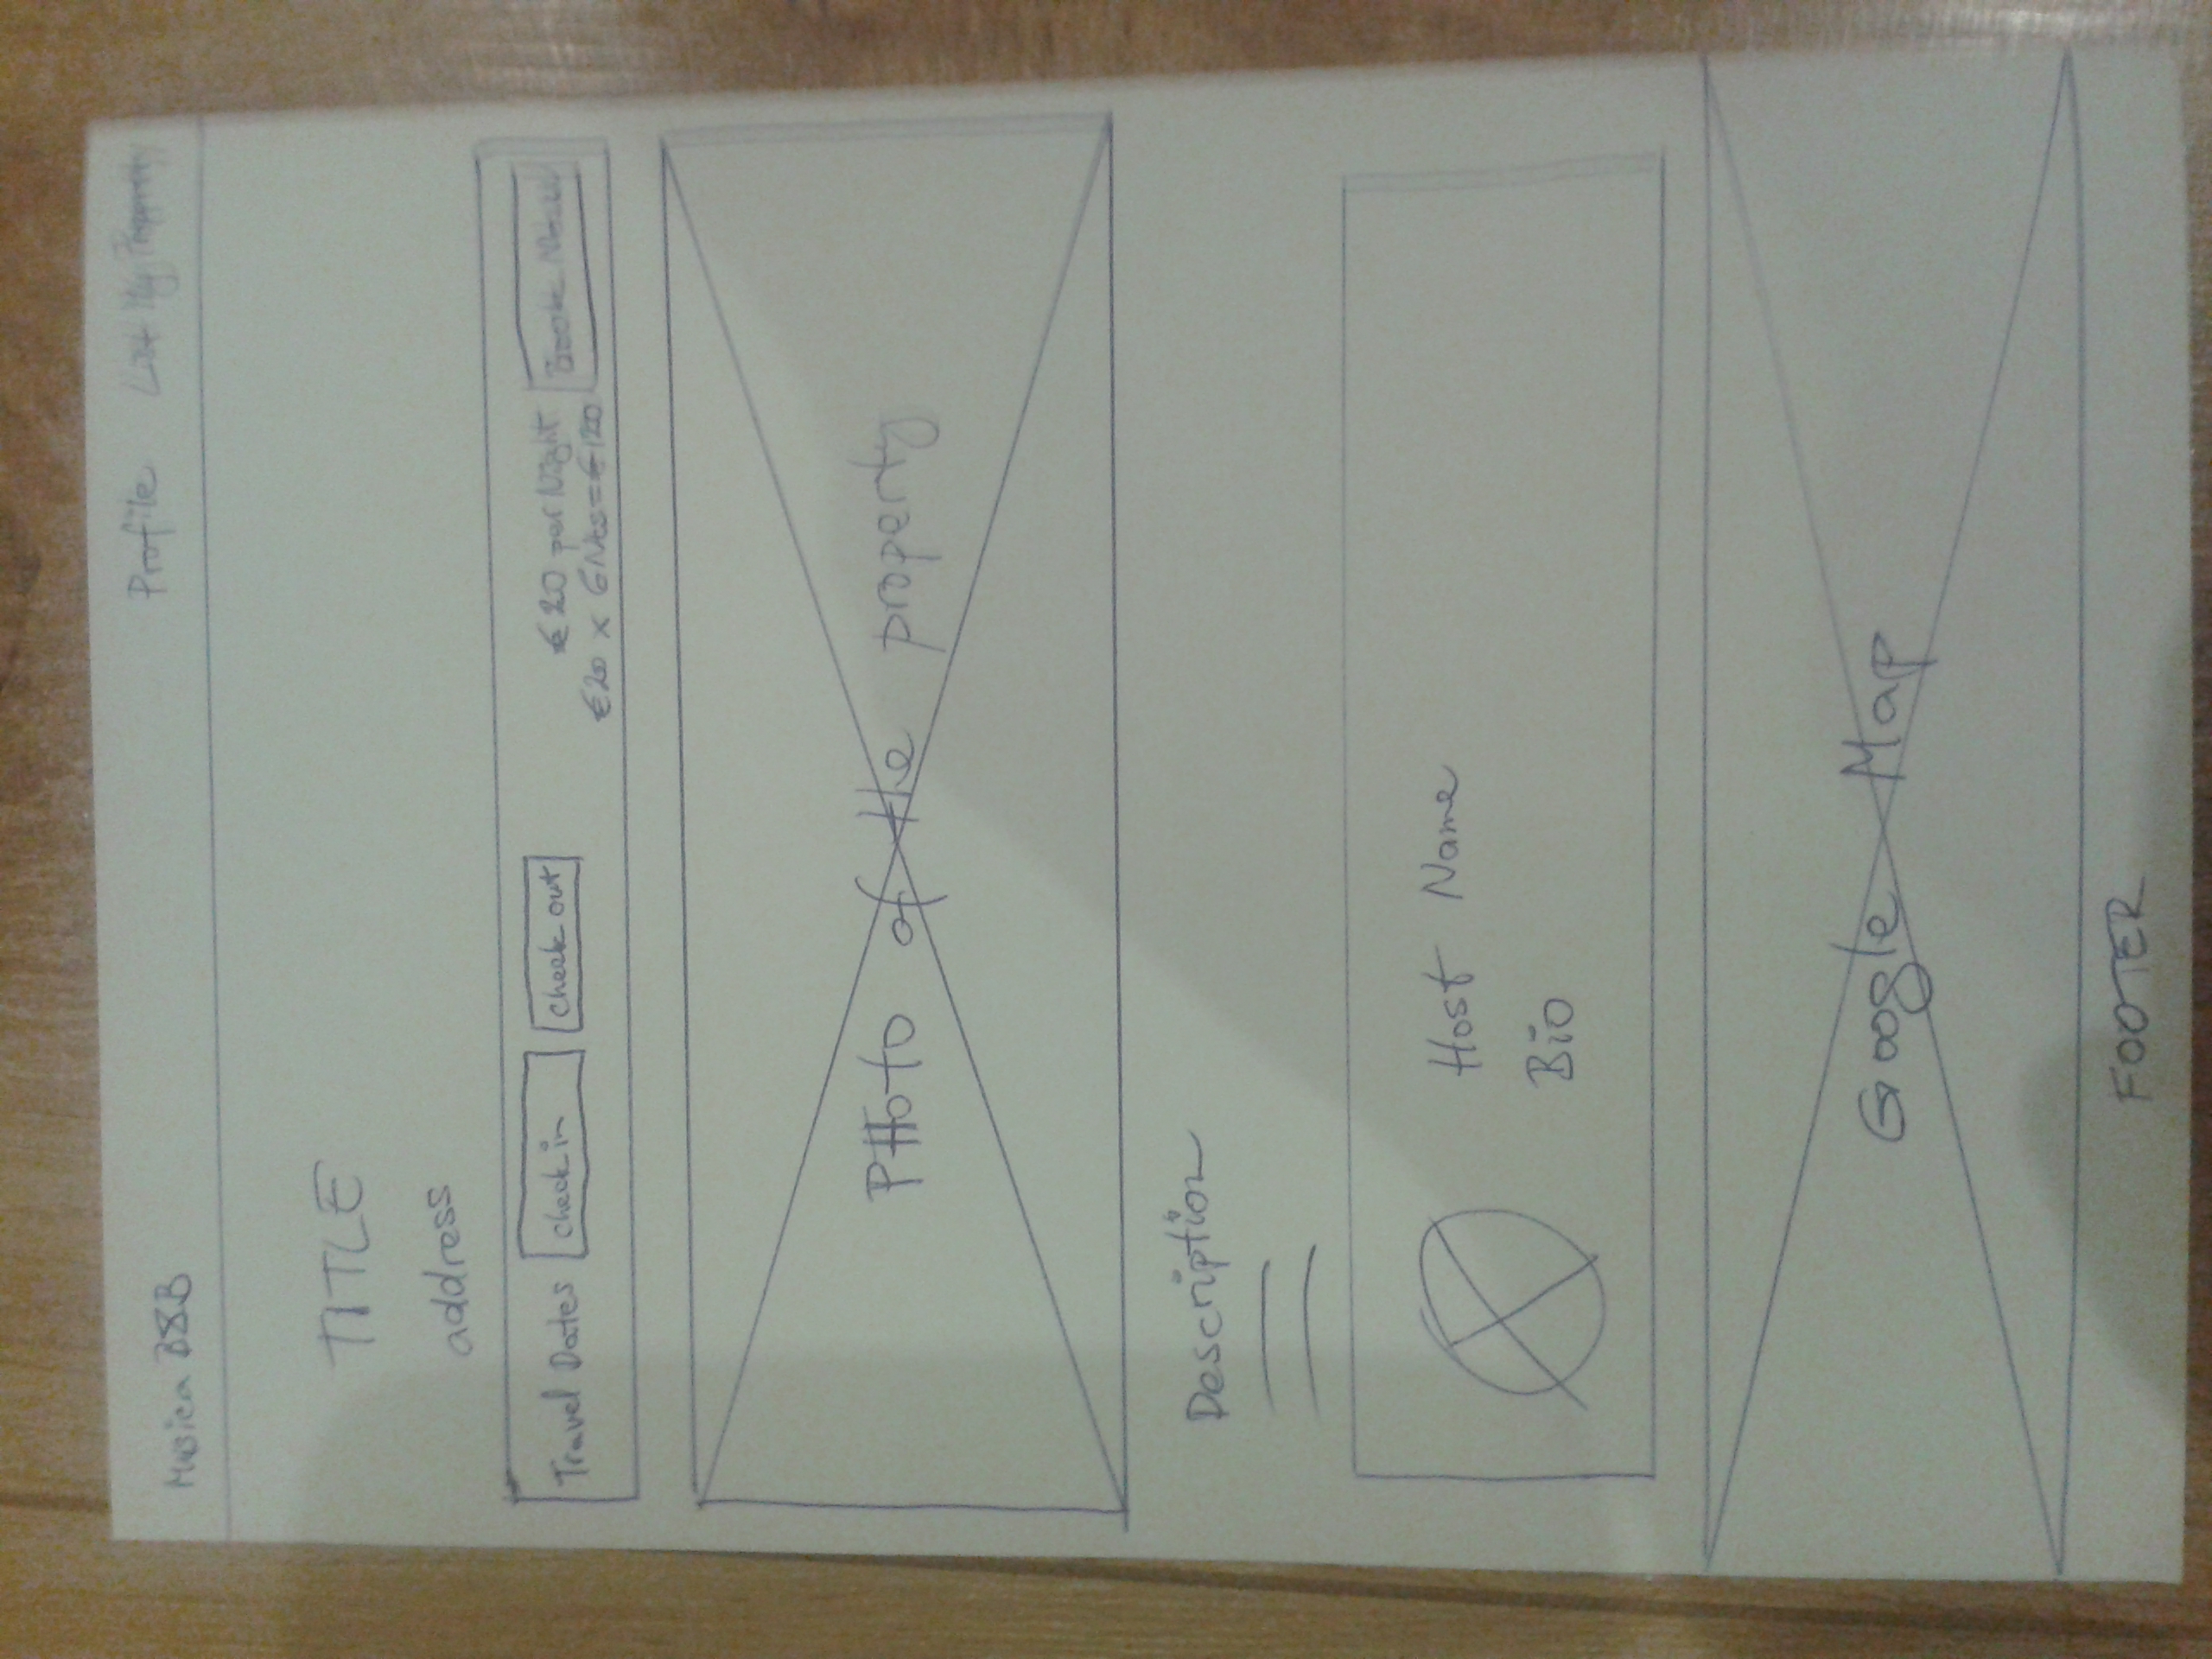 Musica B&B
Profile List My Property
TITLE
address
Travel Dates check in check out €20 per Night Book Now
€20 x 6Nts=€120
PHoto of the property
Description
Host Name
Bio
Google Map
FOOTER